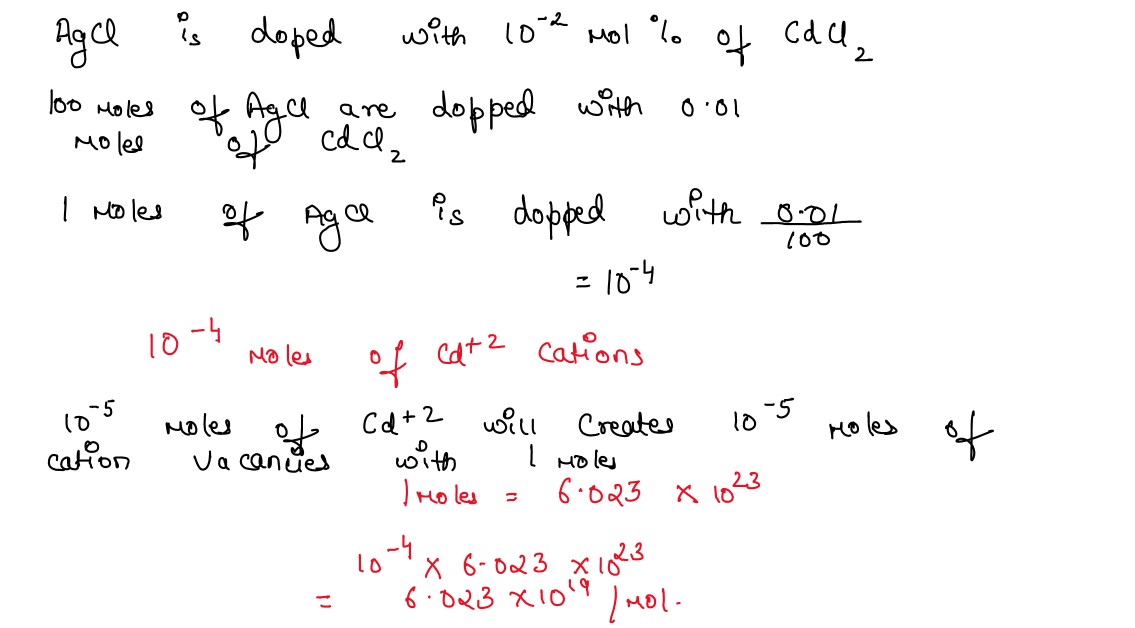 AgCl is doped with 10⁻² mol % of CdCl₂
100 moles of AgCl are dopped with 0.01
moles of CdCl₂
1 moles of AgCl is dopped with 0.01/100
= 10⁻⁴
10⁻⁴ moles of Cd⁺² cations
10⁻⁵ moles of Cd⁺² will creates 10⁻⁵ moles of
cation vacancies with 1 moles
1 moles = 6.023 × 10²³
10⁻⁴ × 6.023 × 10²³
= 6.023 × 10¹⁹ / mol.